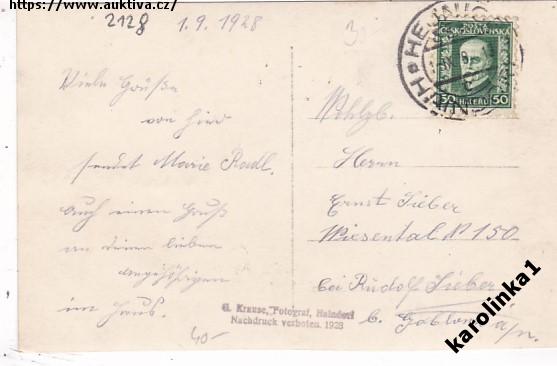 https://www.auktiva.cz/
2128
1.9.1928
Viele Grüße
von hier
sendet Marie Radl.
Auch einen Gruß
an deinen lieben
Angehörigen
im Haus.
40-
G. Krause, Fotograf, Haindorf
Nachdruck verboten. 1928
POŠTA
ČESKOSLOVENSKÁ
50 HALÉŘŮ 50
Wohlgb.
Herrn
Ernst Sieber
Wiesental N 150
bei Rudolf Sieber
b. Gablonz a/n.
karolinka1